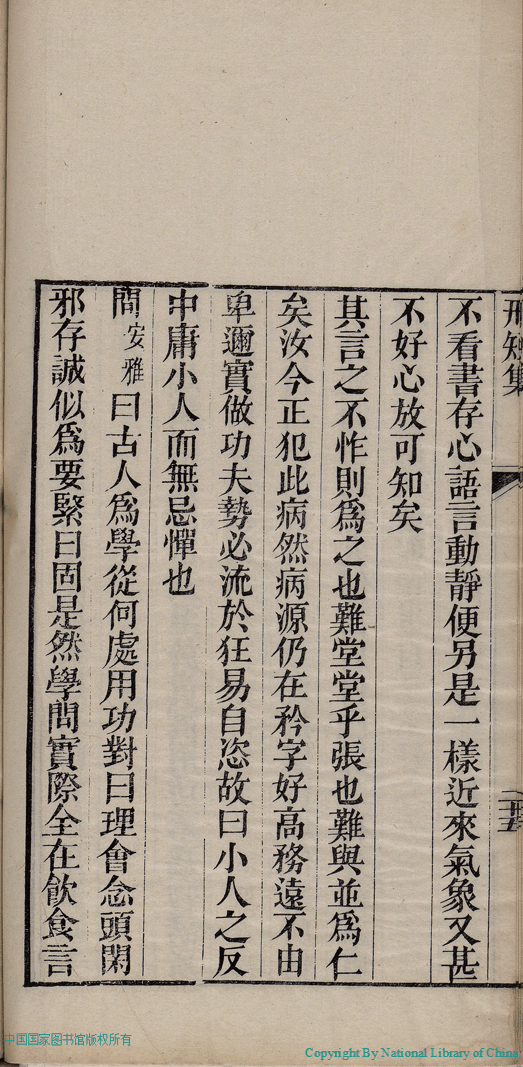 不看書存心語言動靜便另是一樣近來氣象又甚
不好心放可知矣
其言之不怍則爲之也難堂堂乎張也難與並爲仁
矣汝今正犯此病然病源仍在矜字好高務遠不由
卑邇實做功夫勢必流於狂易自恣故曰小人之反
中庸小人而無忌憚也
問安雅曰古人爲學從何處用功對曰理會念頭閑
邪存誠似爲要緊曰固是然學問實際全在飲食言
中国国家图书馆版权所有
Copyright By National Library of China